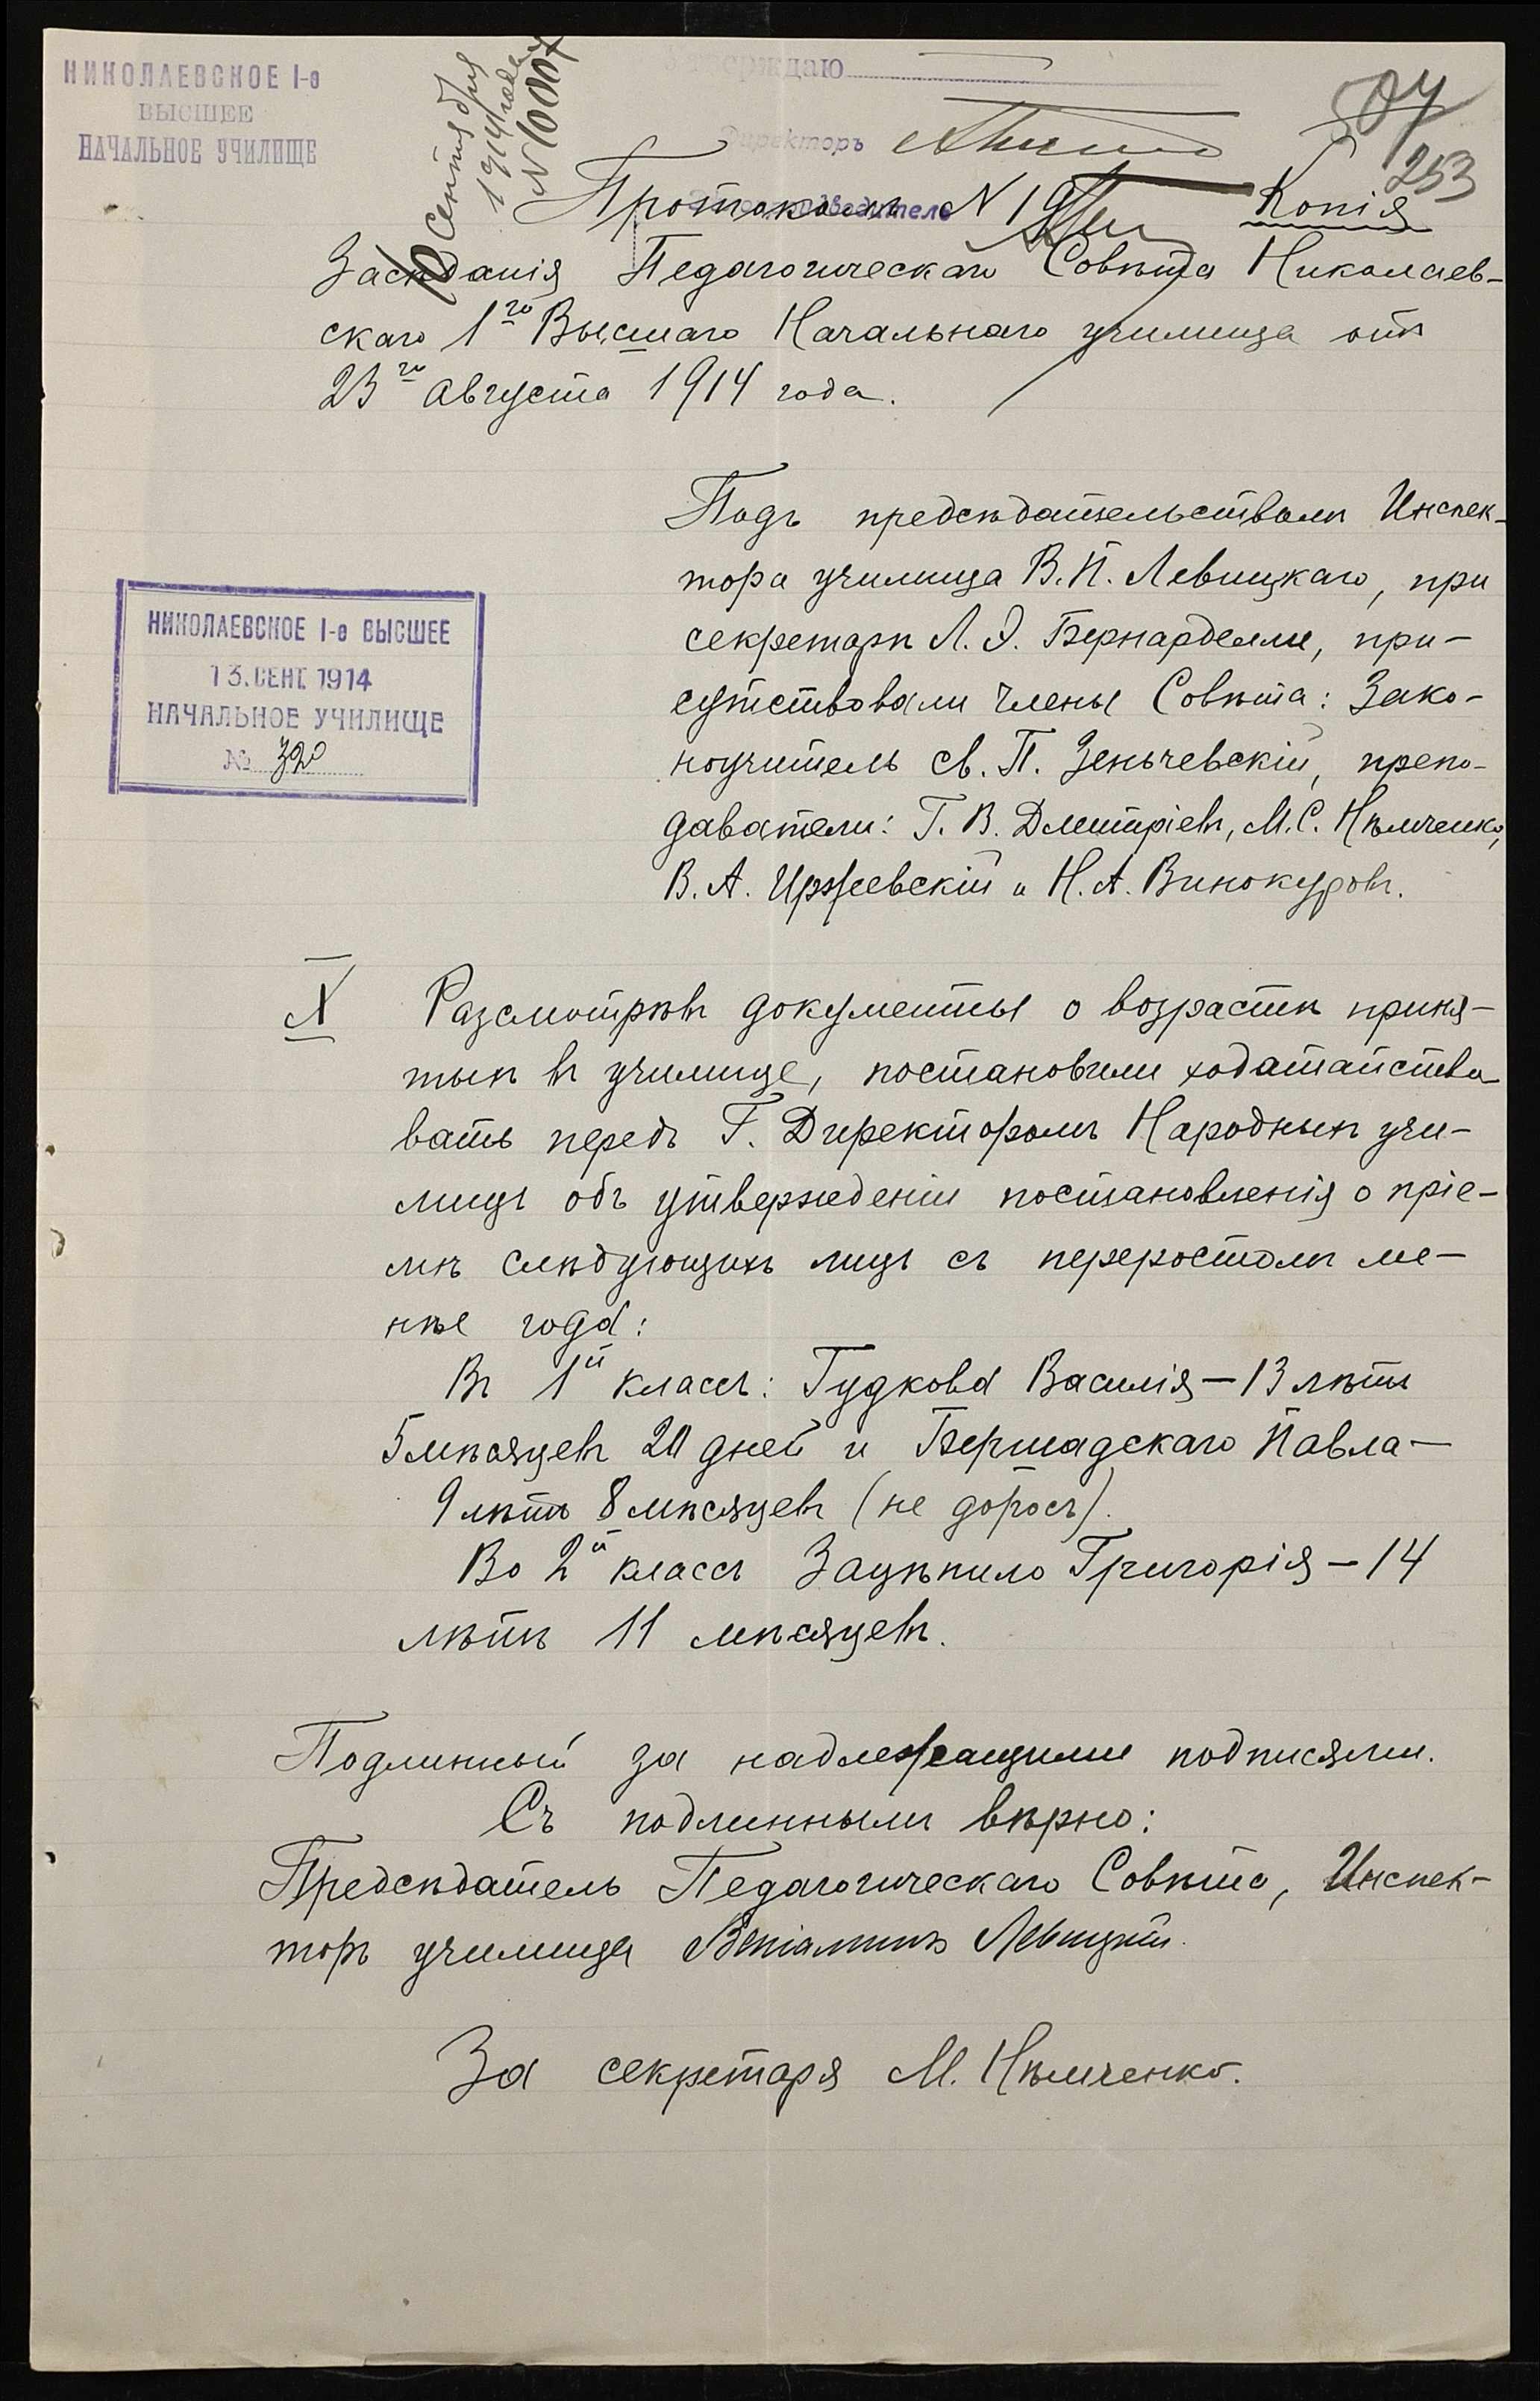 НИКОЛАЕВСКОЕ I-е
ВЫСШЕЕ
НАЧАЛЬНОЕ УЧИЛИЩЕ
10 сентября
1914 года
N 10007
Утверждаю
Директоръ
507
253
Протоколъ N 19
Копія
Засѣданія Педагогическаго Совѣта Николаев-
скаго 1го Высшаго Начальнаго училища отъ
23го августа 1914 года.
Подъ предсѣдательствомъ Инспек-
тора училища В. И. Левицкаго, при
секретарѣ Л. Э. Бернарделли, при-
сутствовали члены Совѣта: Зако-
ноучитель св. П. Зеньчевскій, препо-
даватели: Г. В. Дмитріевъ, М. С. Нѣмченко,
В. А. Иржевскій и Н. А. Винокуровъ.
НИКОЛАЕВСКОЕ I-е ВЫСШЕЕ
13. СЕНТ. 1914
НАЧАЛЬНОЕ УЧИЛИЩЕ
№ 320
X Разсмотрѣвъ документы о возрастѣ приня-
тыхъ въ училище, постановили ходатайство
вать передъ Г. Директоромъ Народныхъ учи-
лищъ объ утвержденіи постановленія о пріе-
мѣ слѣдующихъ лицъ съ переростомъ ме-
нѣе года:
Въ 1й классъ: Гудкова Василія – 13 лѣтъ
5 мѣсяцевъ 20 дней и Бершадскаго Павла –
9 лѣтъ 8 мѣсяцевъ (не доросъ).
Во 2й классъ Зацѣпило Григорія – 14
лѣтъ 11 мѣсяцевъ.
Подлинный за надлежащими подписями.
Съ подлиннымъ вѣрно:
Предсѣдатель Педагогическаго Совѣта, Инспек-
торъ училища Веніаминъ Левицкій.
За секретаря М. Нѣмченко.